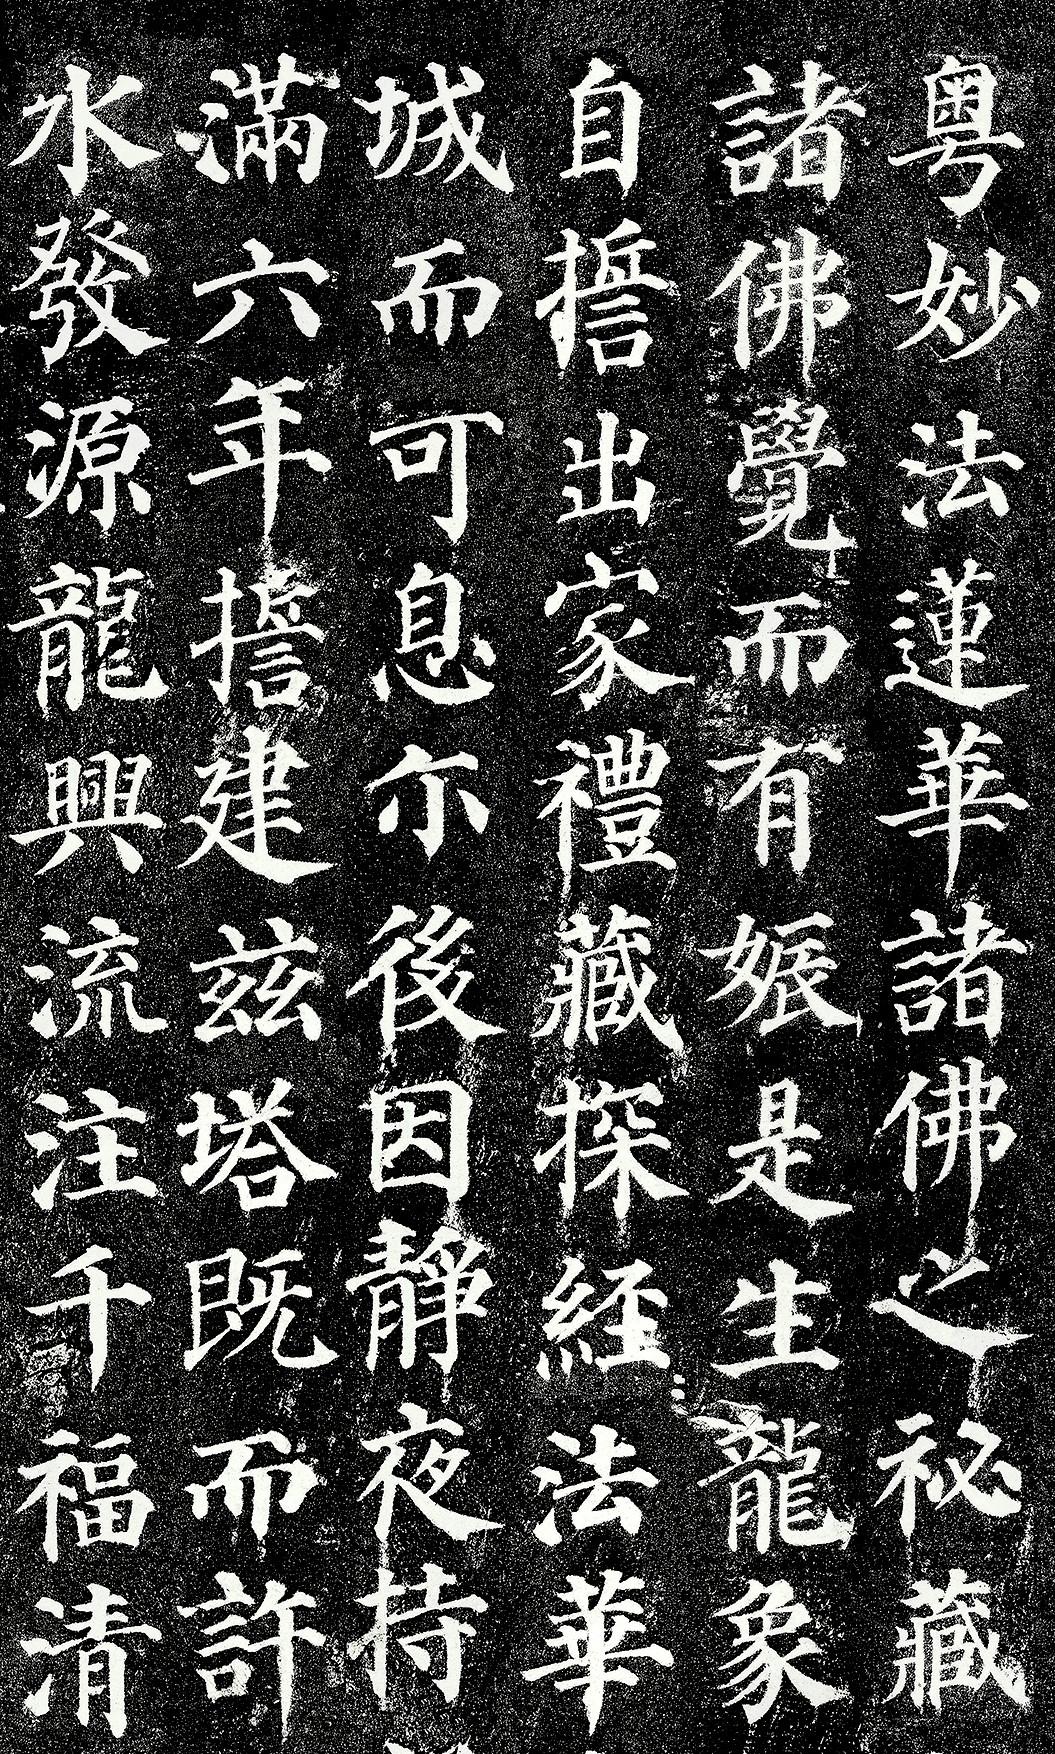 粤妙法蓮華諸佛之祕藏
諸佛覺而有娠是生龍象
自擔出家禮藏探経法華
城而可息尒後因靜夜持
滿六年擔建兹塔既而許
水發源龍興流注千福清